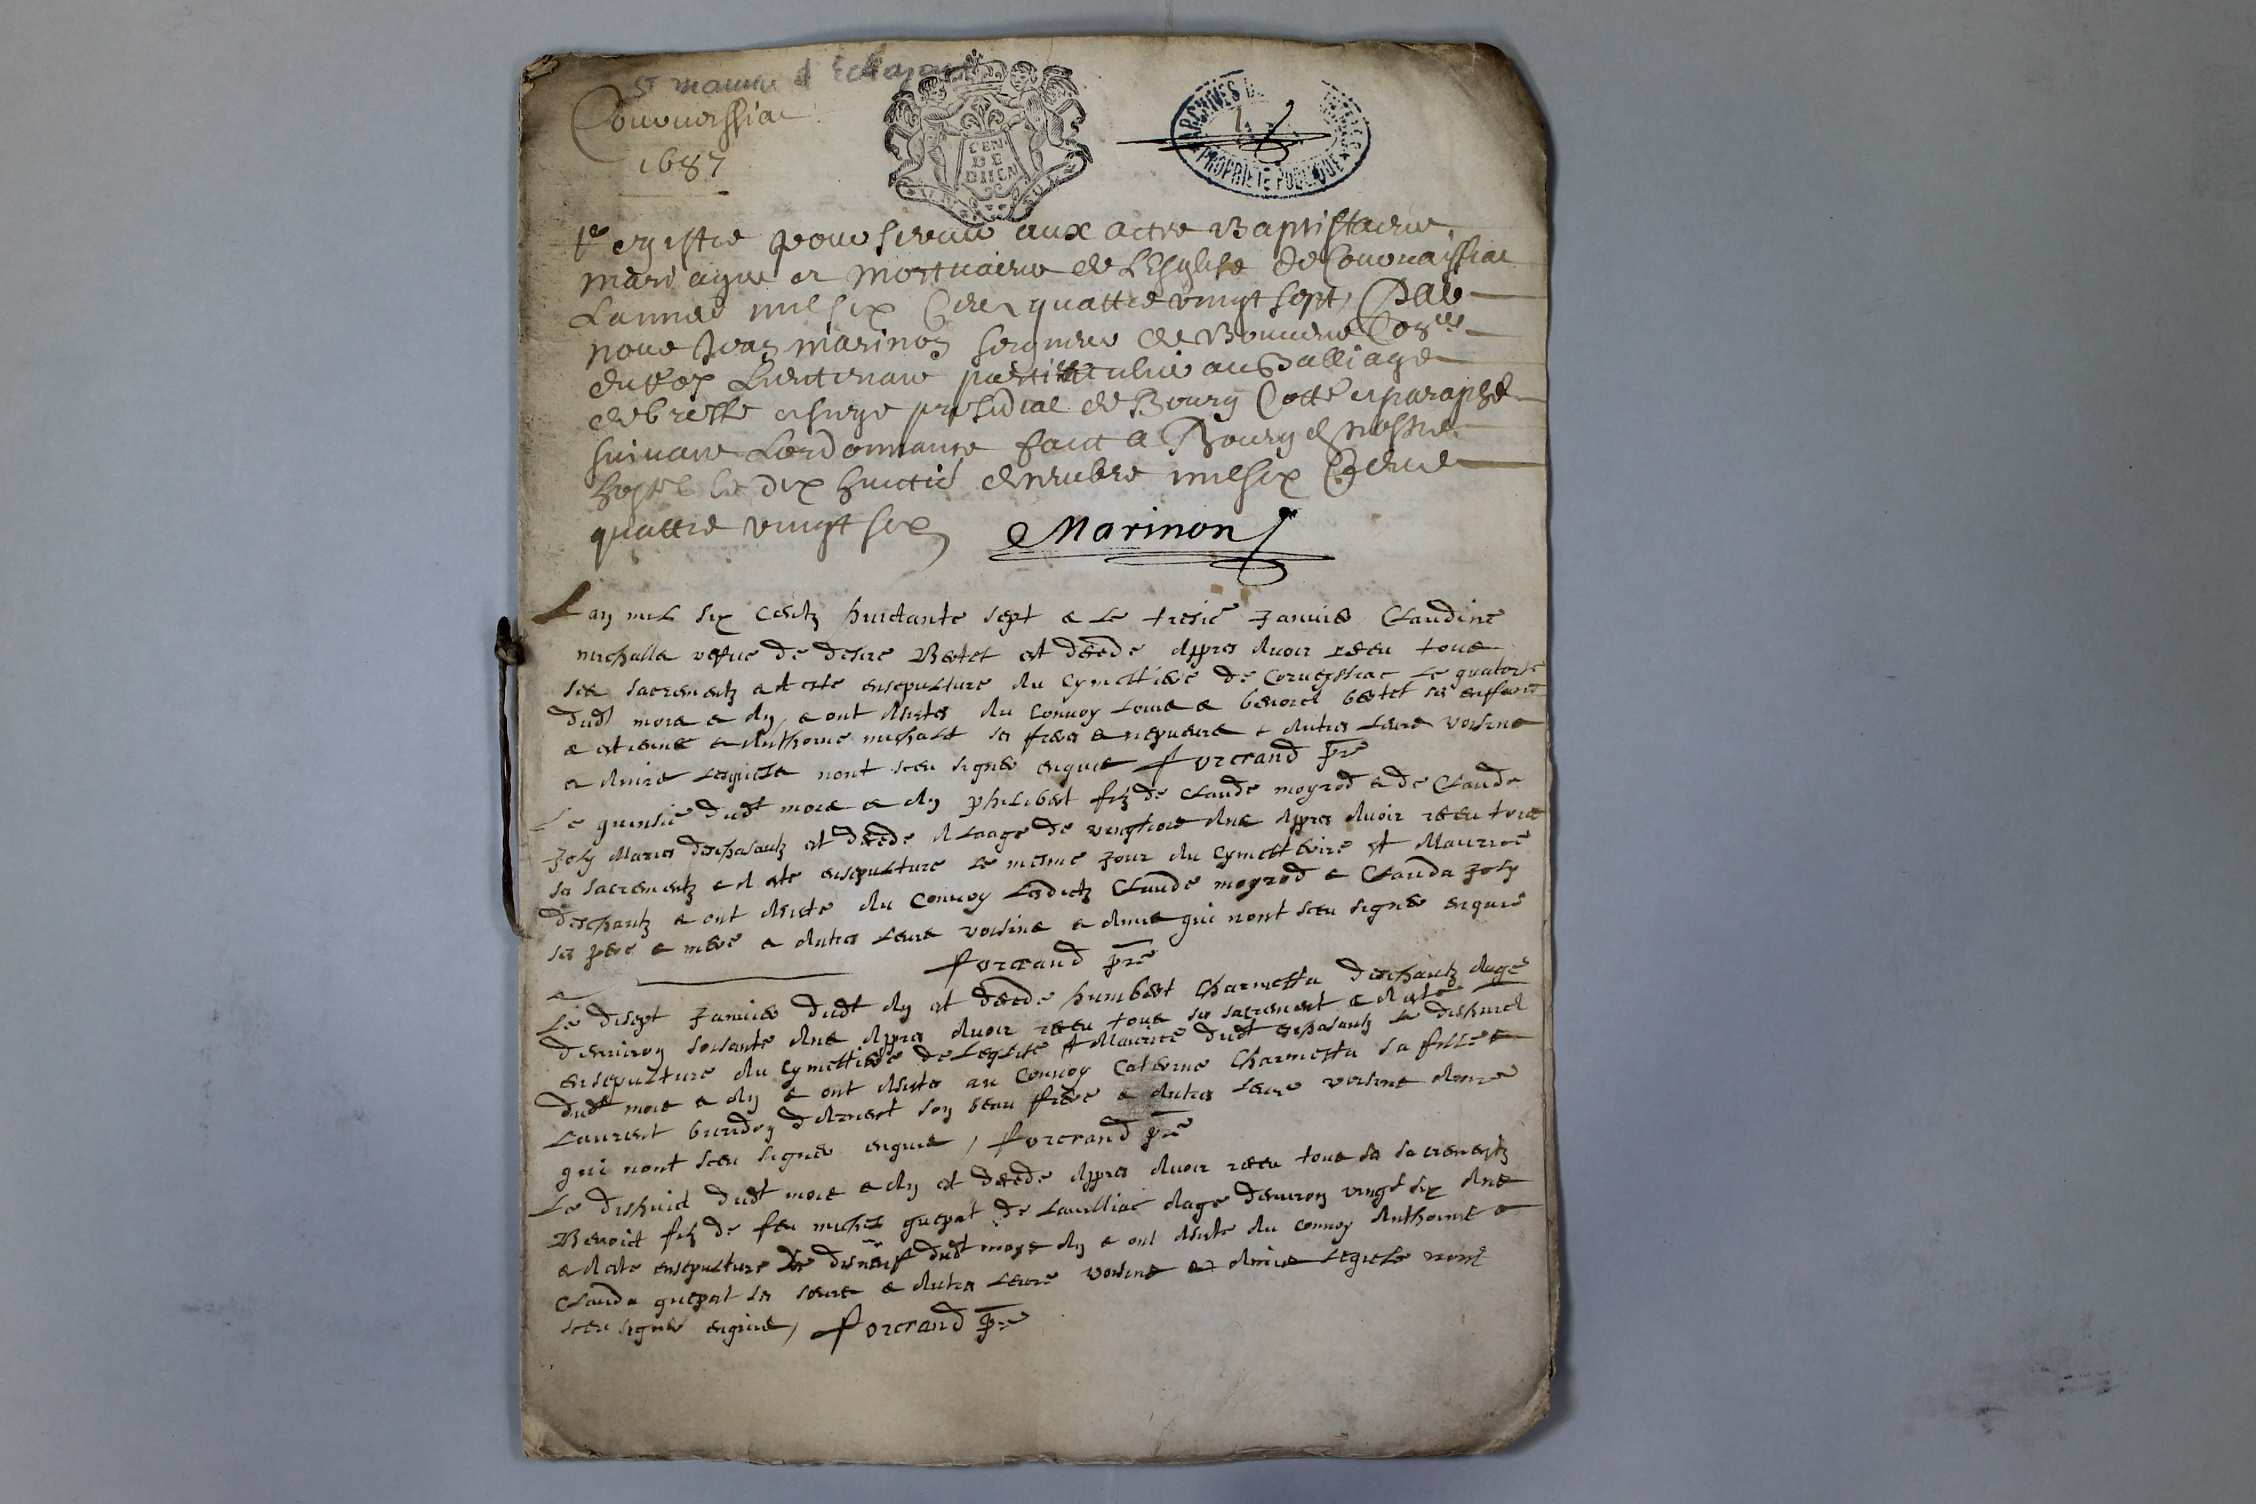 St maurice d Echazaux
Couvourssiac
1687
GEN
DE
DIION
ARCHIVES
PROPRIETE PUBLIQUE
Registre pour servir aux actre Baptistaire
mariague et Mortuaire de L'Esglise de Couvoaissiac
Lannee mil six Cent quattre vingt sept, Par
nous Jean marinon seigneur de Conser
du Roy Lieutenant particulier au Balliage
de bresse et siege presidial de Bourg Cotté et paraphé
suivant Lordonnance faict a Bourg en nostre
hostel le dix huictie decembre mil six Cent
quattre vingt six Marinon
Lan mil six centz huictante sept & le tresie Janvier Claudine
michalla vefue de desire Bertet est decede appres avoir receu tous
ses sacrementz & a este ensepulture au cymettiere de Corveyssiac le quatorse
dudt mois & an, & ont assistes au Convoy Louis & benoict bertet ses enfans
& estienne & Anthoine michalet ses freres & nepveux & autres leurs voisins
& amis lesquels nont sceu signer enquis forcrand pre
Le quinsie dudt mois & an philibert filz de Claude moyrod & de Clauda
Joly Maries deschasautz est decede a Laage de vingtrois ans appres avoir receu tous
ses sacrementz & a este ensepulture le mesme Jour au cymettiere st Maurice
deschautz & ont assiste au Convoy Lesdictz Claude moyrod & Clauda Joly
ses pere & mere & autres leurs voisins & amis qui nont sceu signer enquis
forcrand pre
Le disept Janvier dudt an est decede humbert Charnetta deschautz aage
denviron soisante ans appres avoir receu tous ses sacrement & a este
ensepulture au cymettiere de Leglise st Maurice dudt eschasautz le dishuict
dudt mois & an & ont assistes au Convoy Caterine Charnetta sa fille &
Laurent son beau frere & autres leurs voisins amis
qui nont sceu signer enquis, forcrand pre
Le dishuict dudt mois & an est decede appres avoir receu tous ses sacrementz
Benoict filz de feu michel guepat de Lavilliac aage denviron vingt six ans
& a este ensepulture le disneuf dudt moys & an & ont assiste au convoy Anthoine &
Clauda guepat ses soeurs & autres leurs voisins & amis lequels nont
sceu signer enquis, forcrand pre